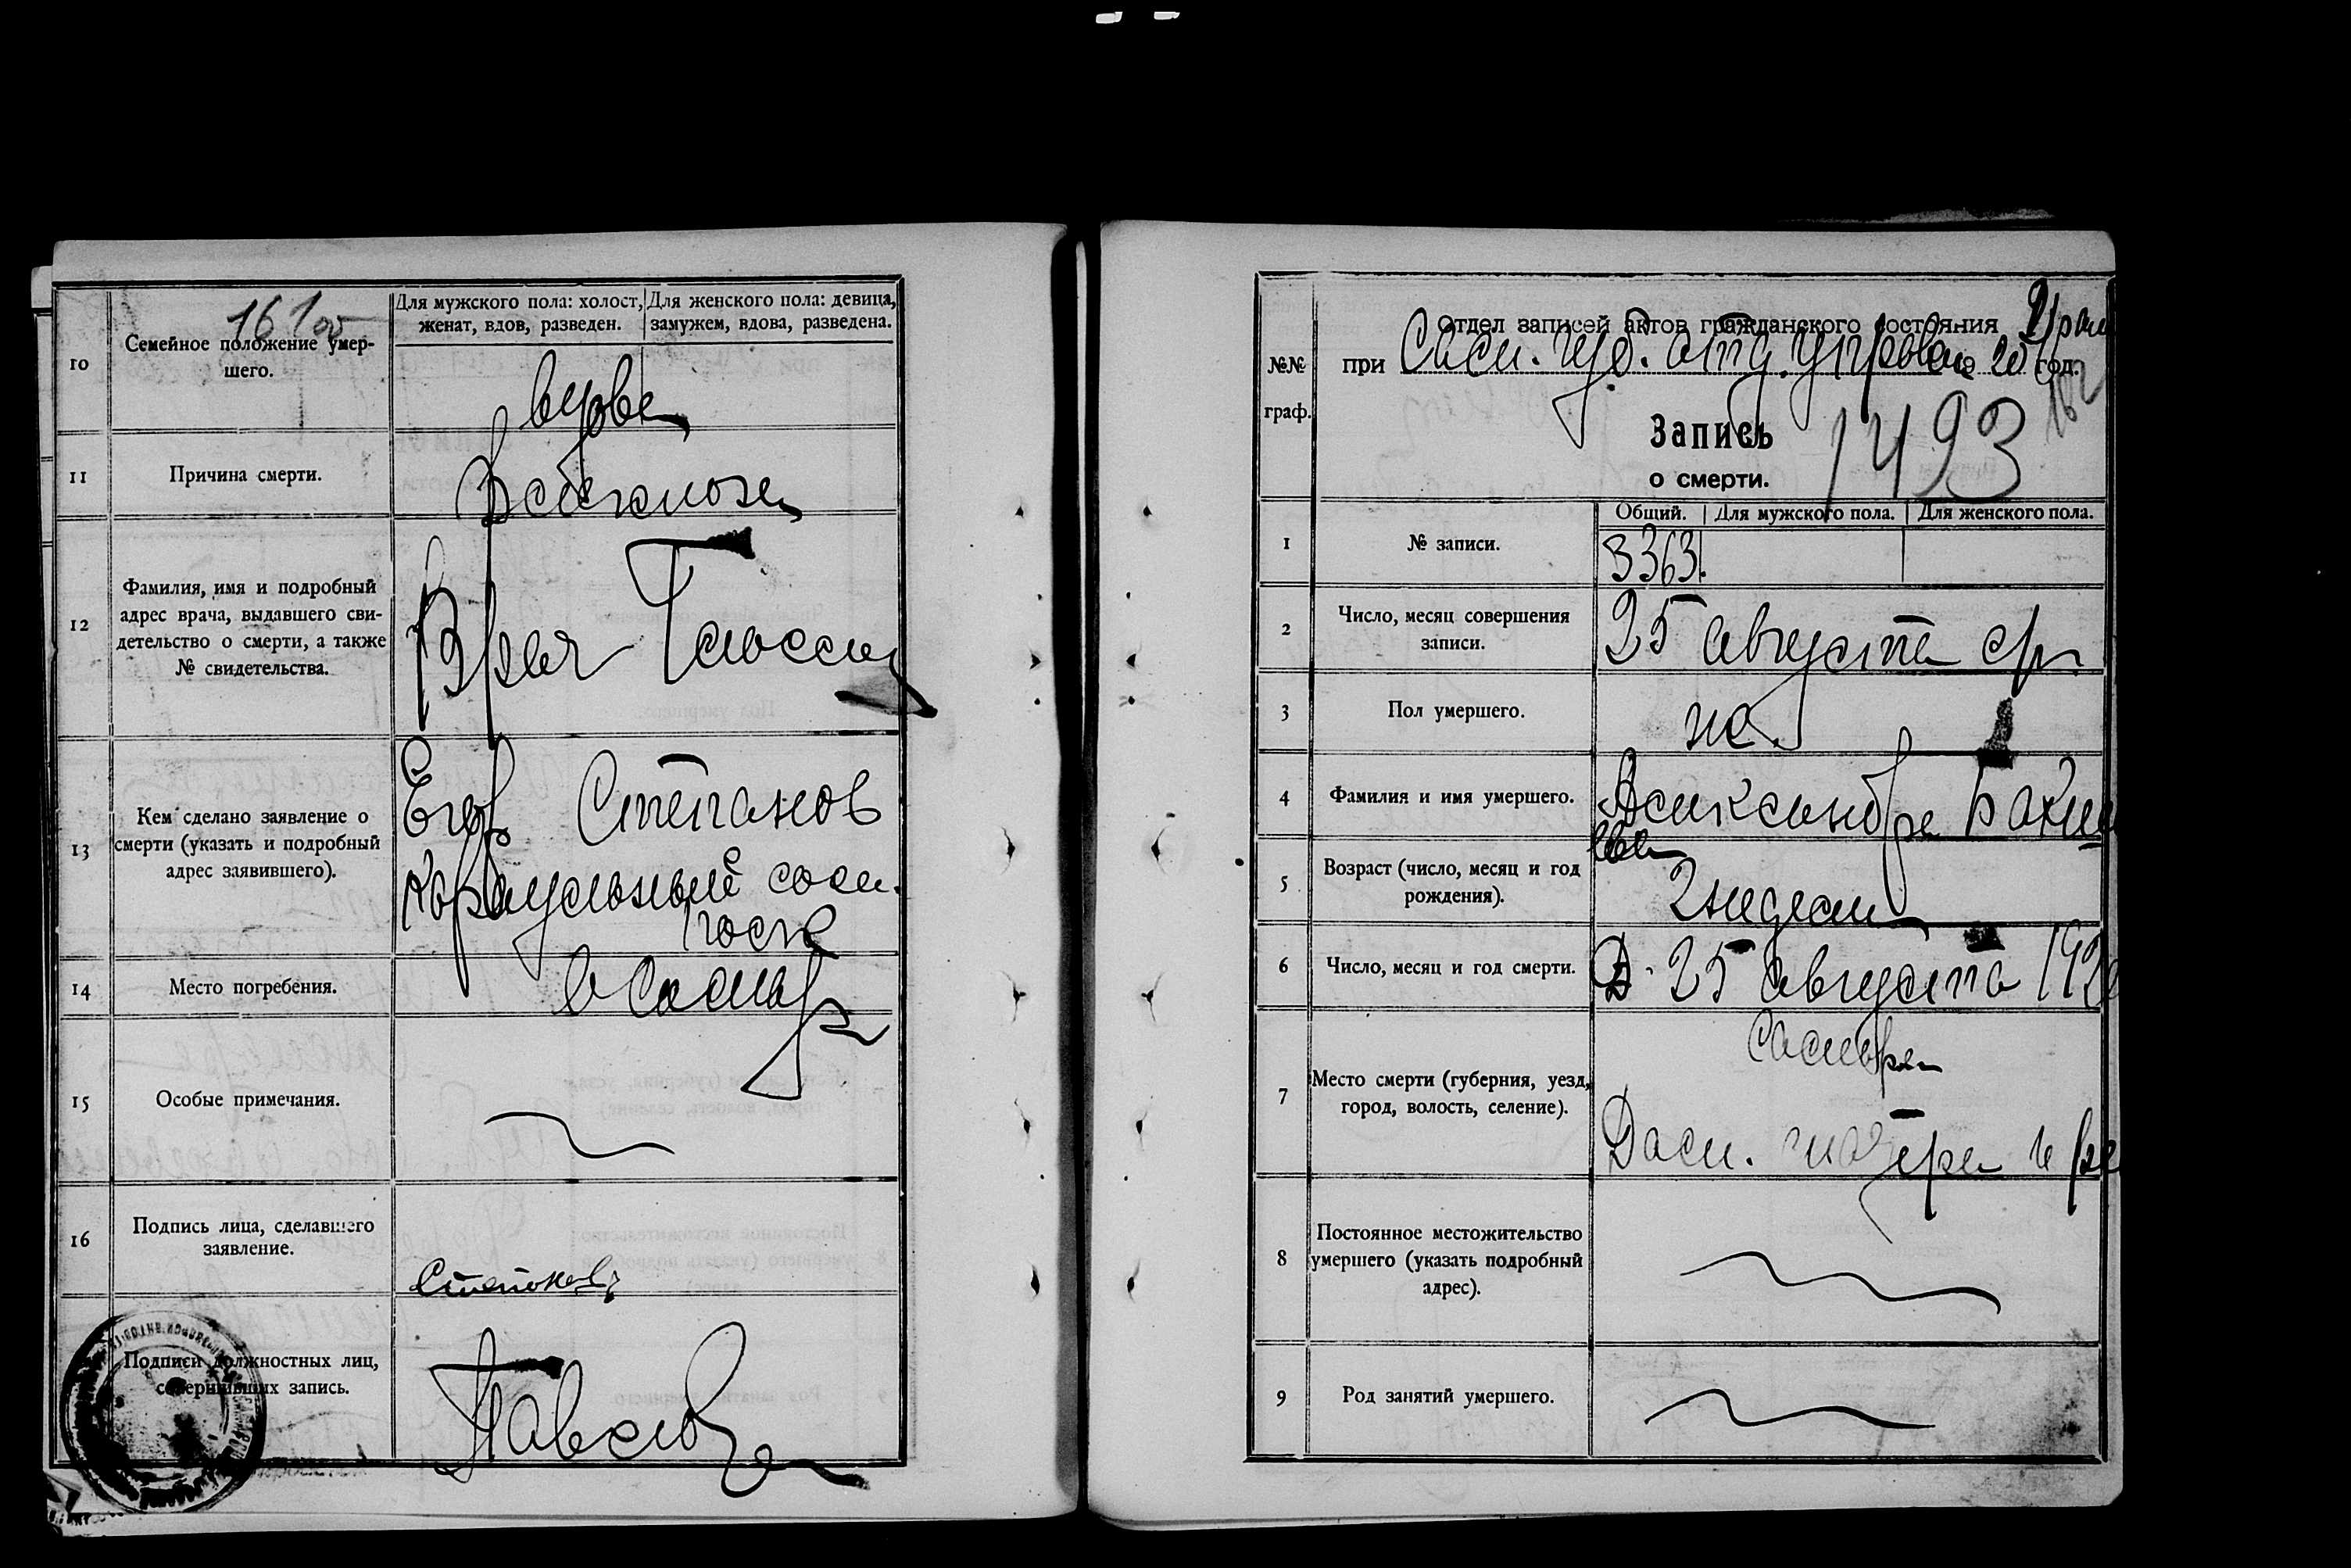 161 об
10
Семейное положение умер-
шего.
Для мужского пола: холост,
женат, вдов, разведен.
Для женского пола: девица,
замужем, вдова, разведена.
вдова
11
Причина смерти.
12
Фамилия, имя и подробный
адрес врача, выдавшего сви-
детельство о смерти, а также
№ свидетельства.
Врач
13
Кем сделано заявление о
смерти (указать и подробный
адрес заявившего).
Егор Степанов
Караульный
14
Место погребения.
в Самаре
15
Особые примечания.
16
Подпись лица, сделавшего
заявление.
Степанов
Подписи должностных лиц,
совершивших запись.
Павлов
№№
граф.
Отдел записей актов гражданского состояния
при Сам. Губ. отд. управл. 20 год.
162
Запись
о смерти.
1493
Общий. Для мужского пола. Для женского пола.
1
№ записи.
3363.
2
Число, месяц совершения
записи.
25 августа
3
Пол умершего.
4
Фамилия и имя умершего.
Александра
5
Возраст (число, месяц и год
рождения).
2 недели
6
Число, месяц и год смерти.
25 августа 1920
7
Место смерти (губерния, уезд,
город, волость, селение).
Самара
Дом матери и ре
8
Постоянное местожительство
умершего (указать подробный
адрес).
9
Род занятий умершего.